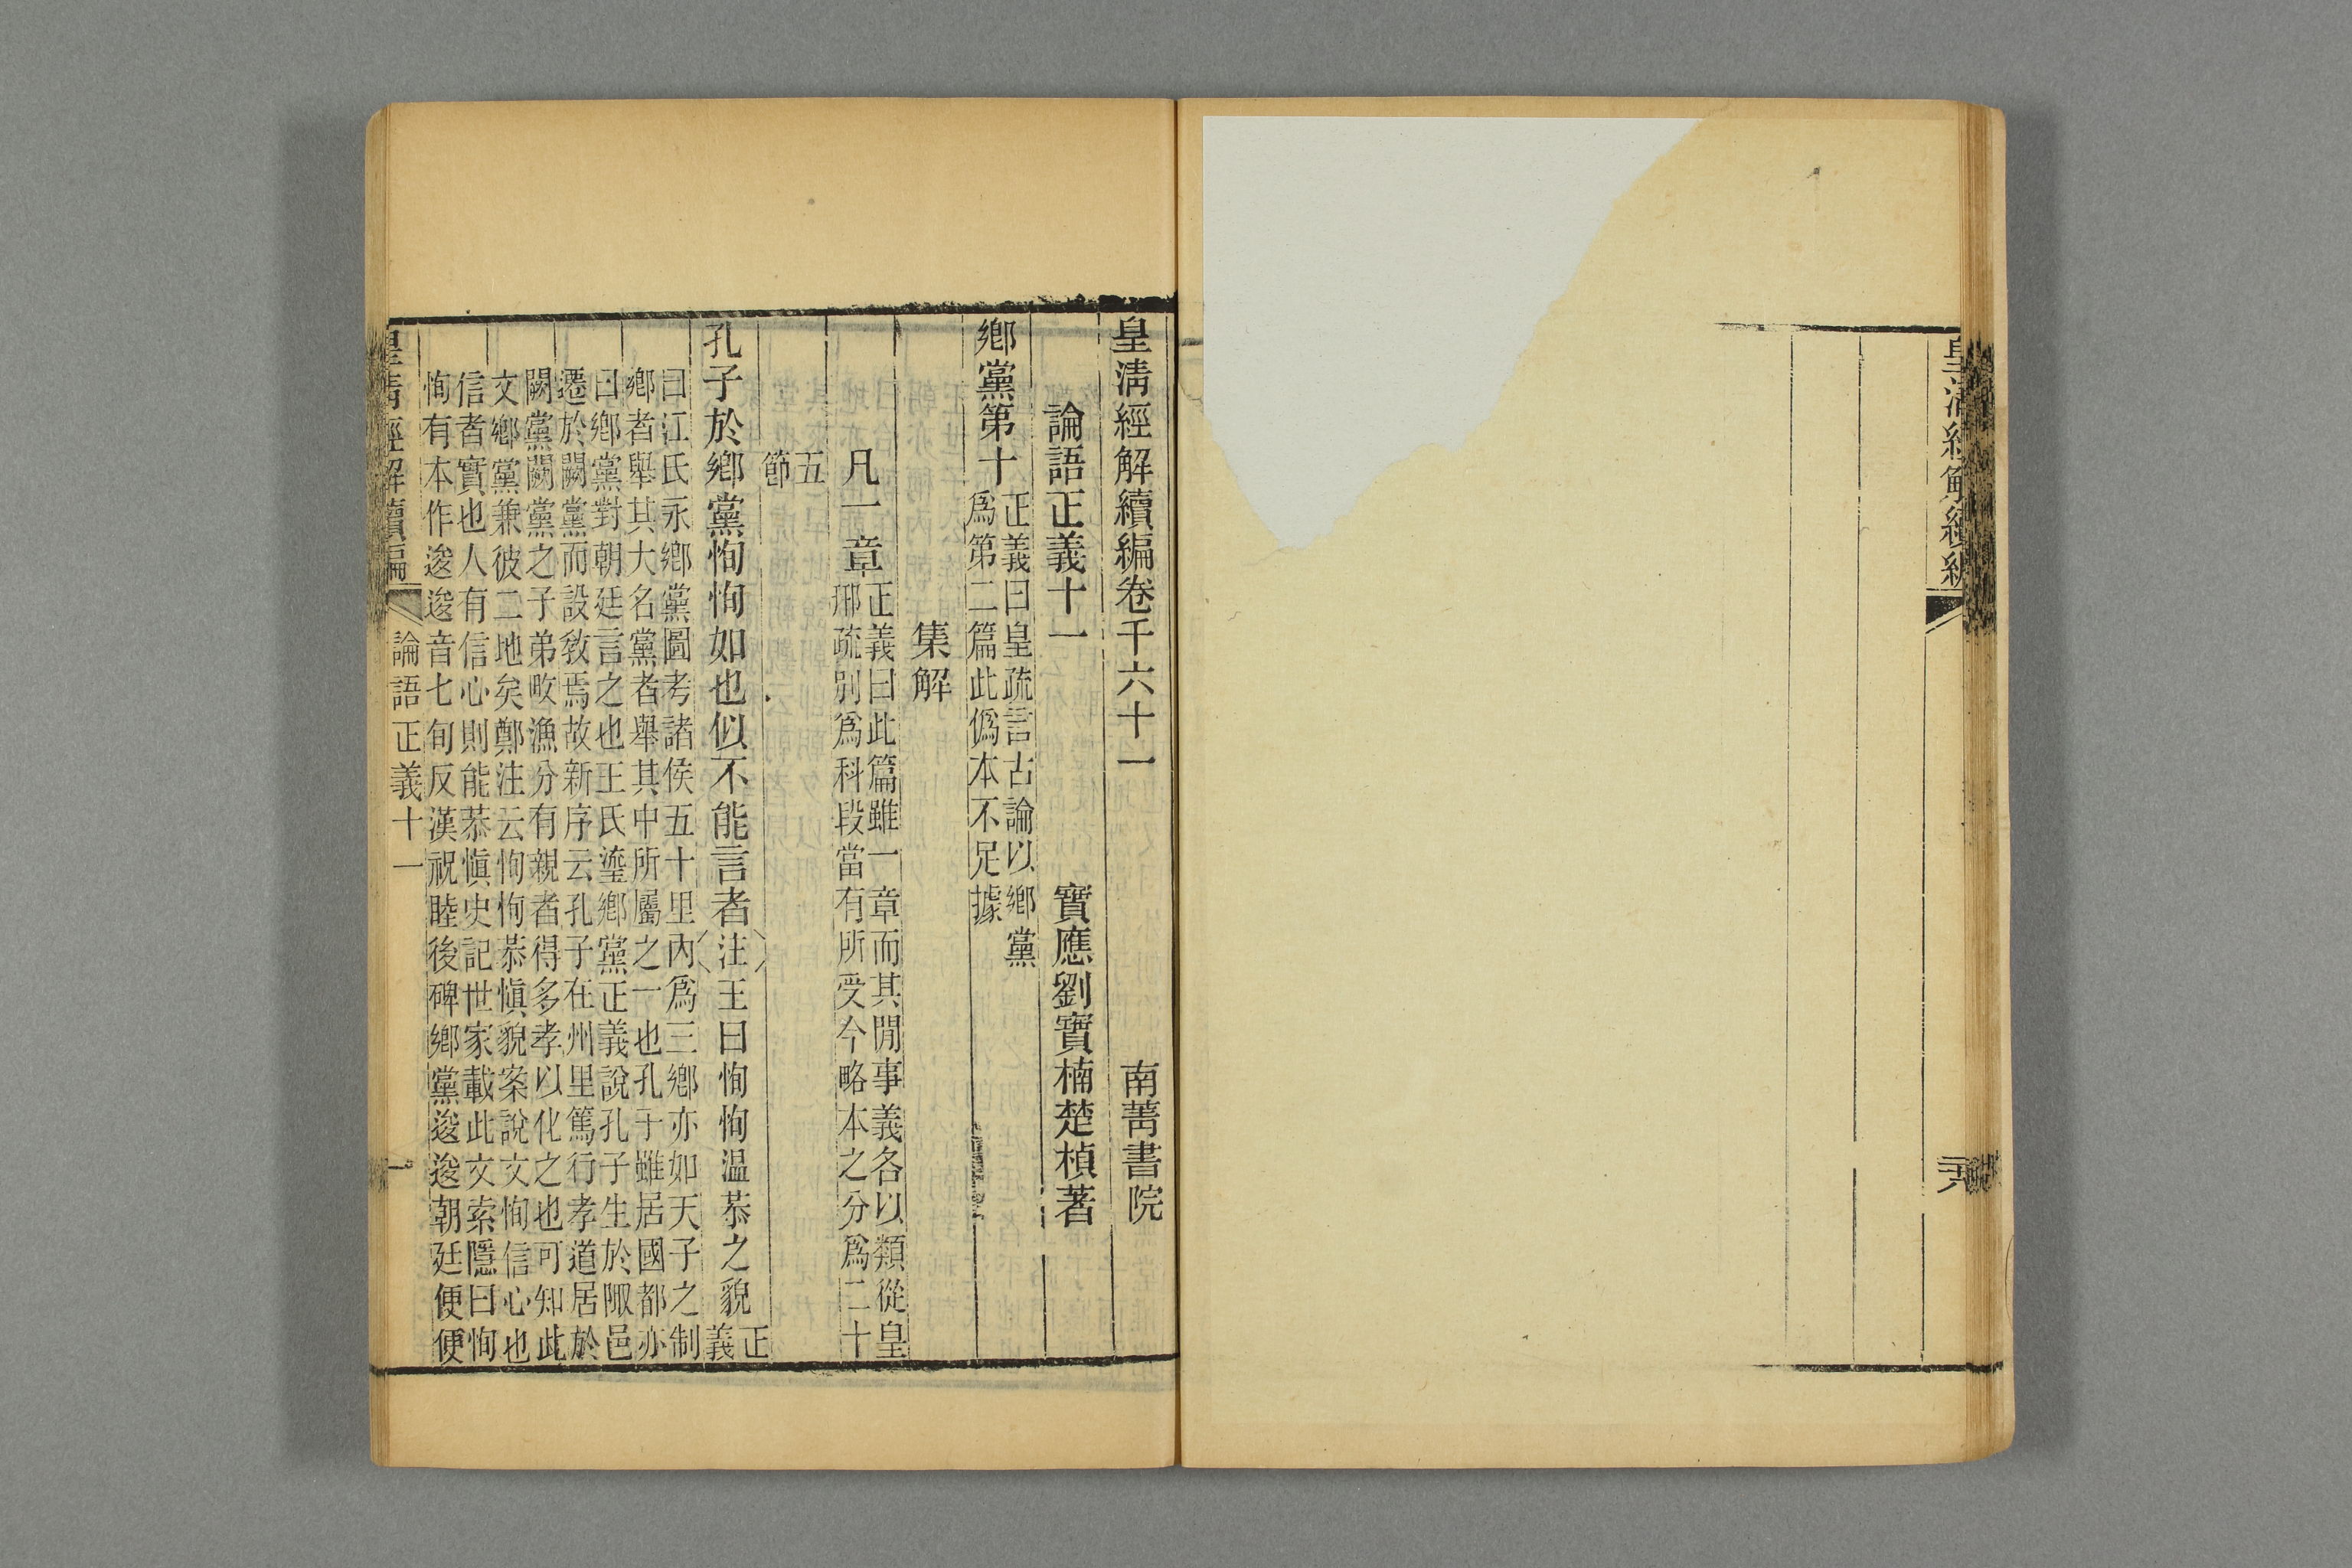 皇清經解續編
六
皇清經解續編卷千六十一　南菁書院
論語正義十一　寶應劉寶楠楚楨著
鄉黨第十
正義曰皇疏言古論以鄉黨
爲第二篇此僞本不足據
集解
凡一章
正義曰此篇雖一章而其閒事義各以類從皇
邢疏別爲科段當有所受今略本之分爲二十
五
節
孔子於鄉黨恂恂如也似不能言者注王曰恂恂温恭之貌
正
義
曰江氏永鄉黨圖考諸侯五十里內爲三鄉亦如天子之制
鄉者舉其大名黨者舉其中所屬之一也孔子雖居國都亦
曰鄉黨對朝廷言之也王氏瑬鄉黨正義說孔子生於陬邑
遷於闕黨而設敎焉故新序云孔子在州里篤行孝道居於
闕黨闕黨之子弟畋漁分有親者得多孝以化之也可知此
文鄉黨兼彼二地矣鄭注云恂恂恭愼貌案說文恂信心也
信者實也人有信心則能恭愼史記世家載此文索隱曰恂
恂有本作逡逡音七旬反漢祝睦後碑鄉黨逡逡朝廷便便
皇清經解續編　論語正義十一　一